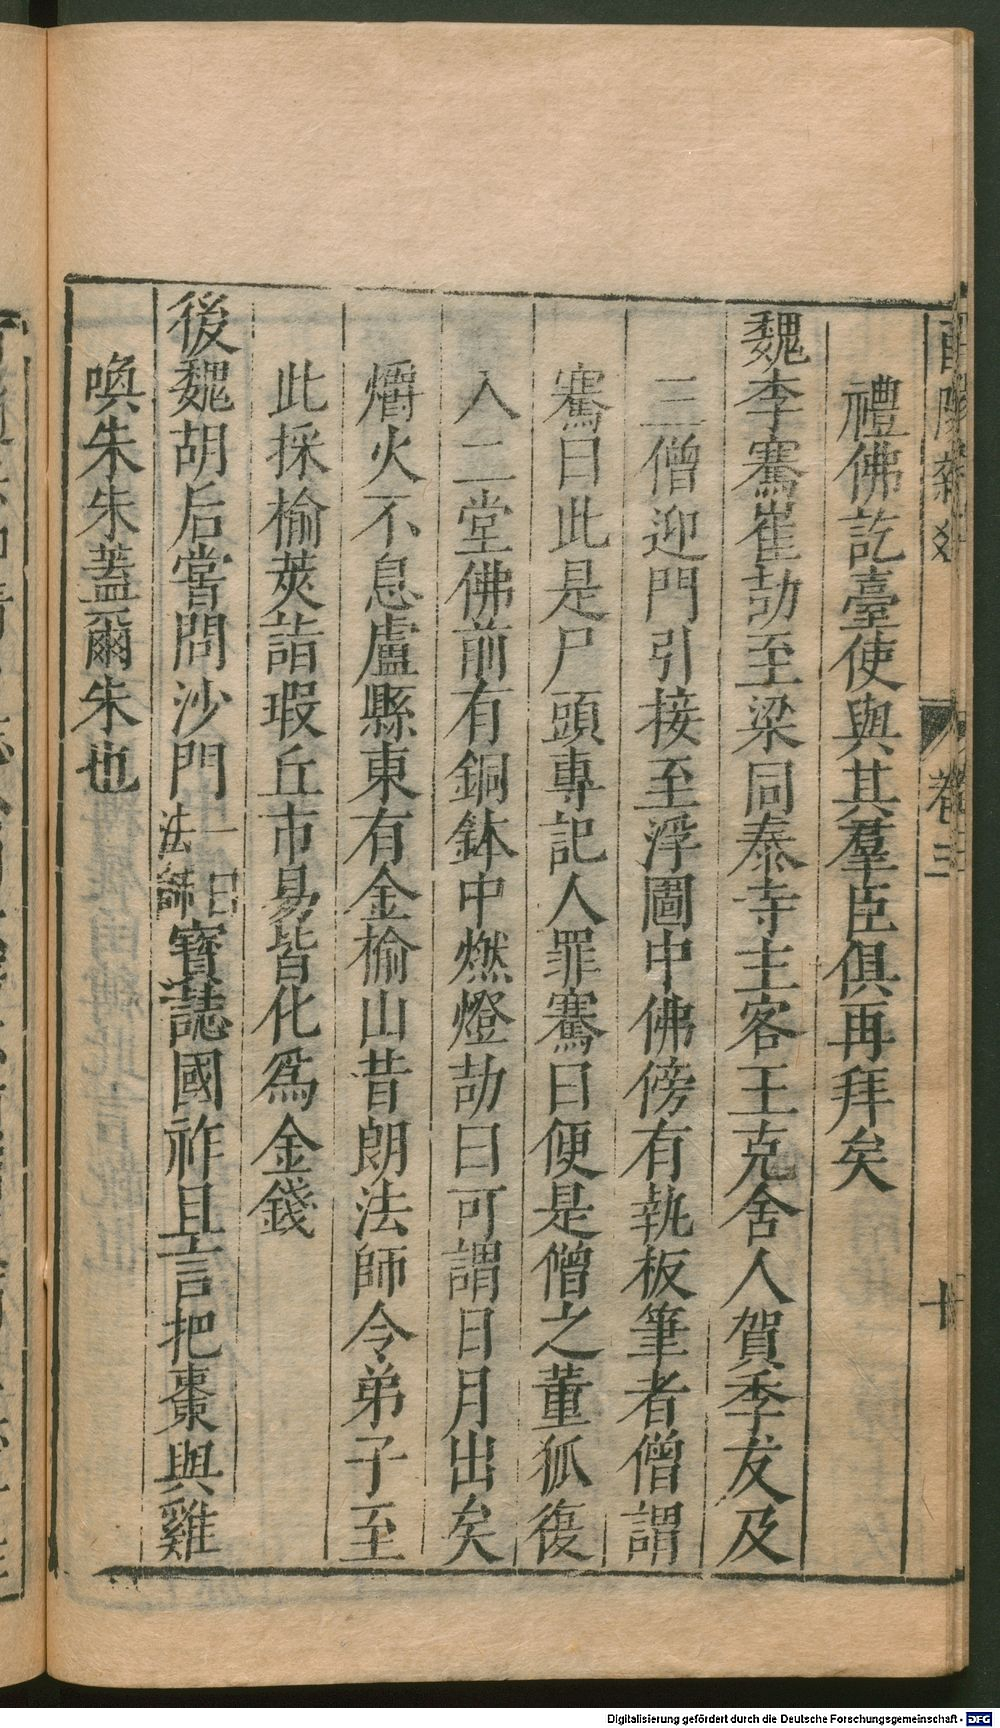 禮佛訖臺使與其羣臣俱再拜矣
魏李騫崔劼至梁同泰寺主客王克舍人賀季友及
三僧迎門引接至浮圖中佛傍有執板筆者僧謂
騫曰此是尸頭專記人罪騫曰便是僧之董狐復
入二堂佛前有銅鉢中燃燈劼曰可謂日月出矣
爝火不息盧縣東有金榆山昔朗法師令弟子至
此採榆莢詣瑕丘市易皆化爲金錢
後魏胡后嘗問沙門一曰法師寶誌國祚且言把棗與雞
喚朱朱蓋爾朱也
卷三
Digitalisierung gefördert durch die Deutsche Forschungsgemeinschaft - DFG